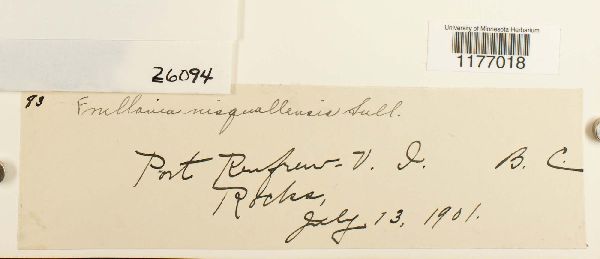 University of Minnesota Herbarium
1177018
26094
93 Frullania nisquallensis Sull.
Port Renfrew - V. I. B. C.
Rocks,
July 13, 1901.